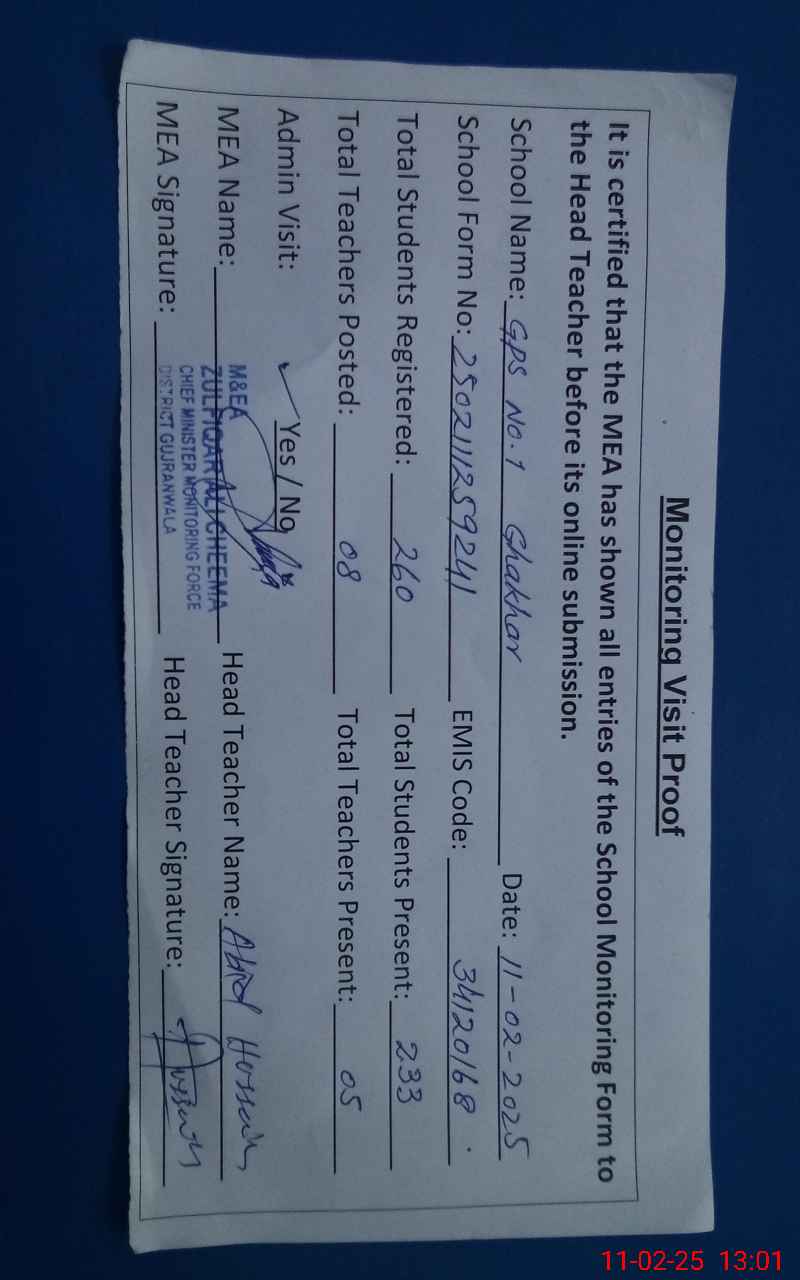 Monitoring Visit Proof
It is certified that the MEA has shown all entries of the School Monitoring Form to
the Head Teacher before its online submission.
School Name: GPS No.1 Ghakhar Date: 11-02-2025
School Form No: 2502111259241 EMIS Code: 34120168
Total Students Registered: 260 Total Students Present: 233
Total Teachers Posted: 08 Total Teachers Present: 05
Admin Visit: ✓ Yes / No
MEA Name: Head Teacher Name: Abid Hussain
M&EA
ZULFIQAR ALI CHEEMA
CHIEF MINISTER MONITORING FORCE
DISTRICT GUJRANWALA
MEA Signature: Head Teacher Signature: Hussain
11-02-25 13:01